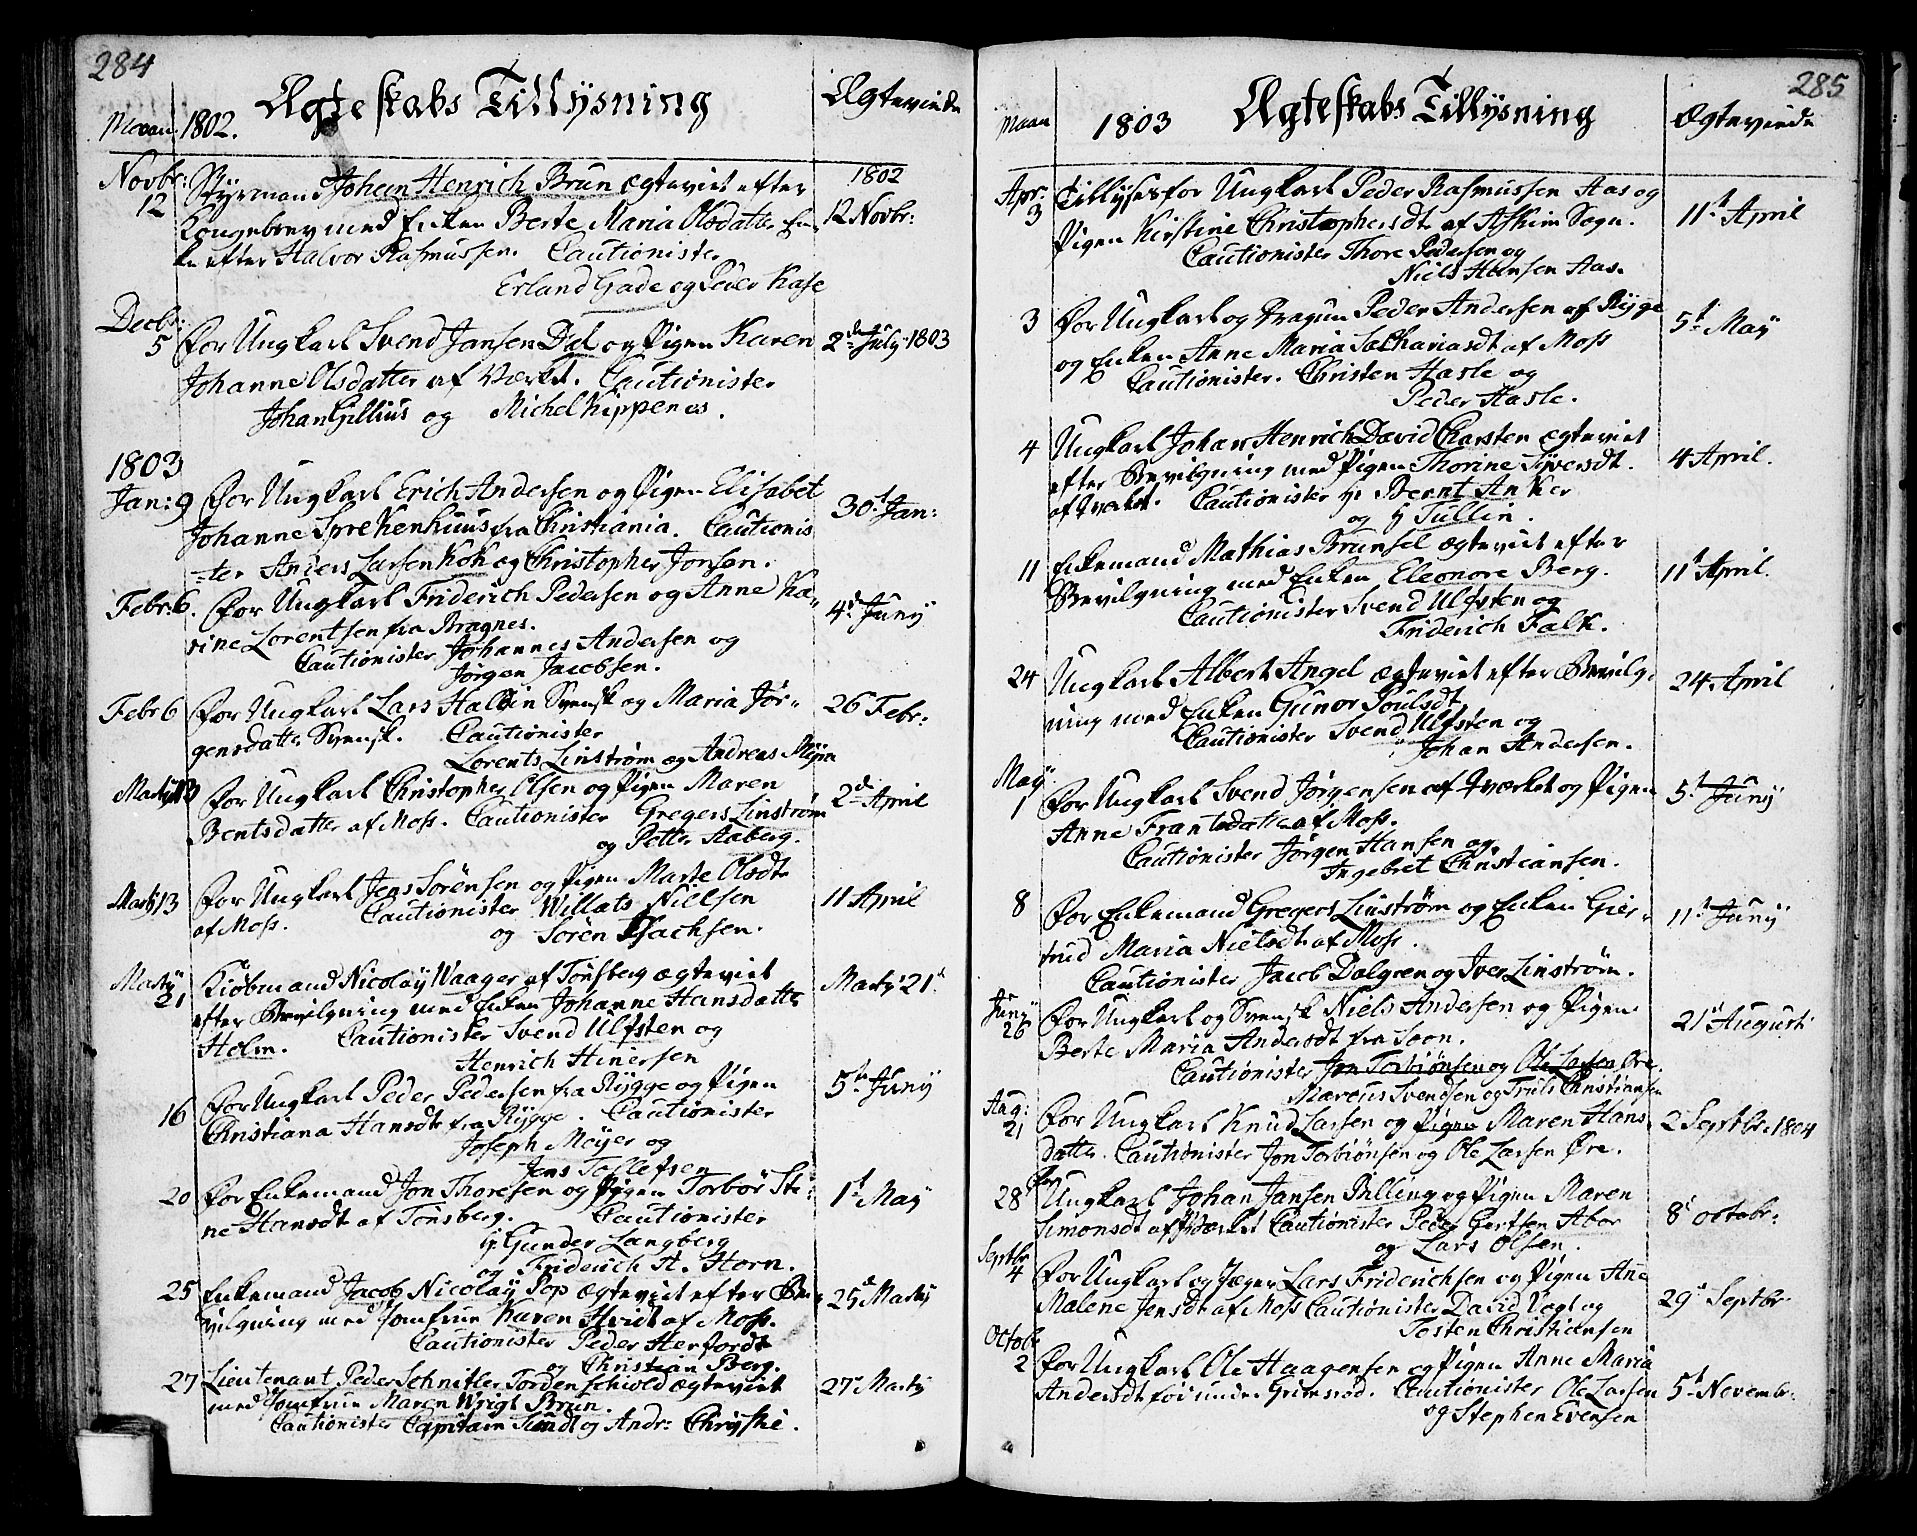 284
Ægteskabs Tillysning
Ægteviede
Maan. 1802.
Novbr:
12
Styrmand Johan Henrich Brun ægteviet efter
1802
Kongebrev med Enken Berte Maria Olsdatter En-
12 Novbr:
ke efter Halvor Rasmussen. Cautionister
Erland Gade og Peder Kase
Decbr:
5
For Ungkarl Svend Jansen Dal og Pigen Karen
2de July 1803
Johanne Olsdatter af Værket. Cautionister
Johan Gillius og Michel Kippenes.
1803
Jan: 9
For Ungkarl Erich Andersen og Pigen Elisabet
30t Jan:
Johanne Sprekenhuus fra Christiania. Cautionis
-ter Anders Larsen Kok og Christopher Jonsen.
Febr 6.
For Ungkarl Friderich Pedersen og Anne Ka-
4d Juny
rine Lorentsen fra Bragnes.
Cautionister Johannes Andersen og
Jørgen Jacobsen.
Febr 6
For Ungkarl Lars Hallin Svensk og Maria Jør-
26 Febr:
gensdatter Svensk. Cautionister
Lorents Linstrøm og Andreas
Marty 13
For Ungkarl Christopher Olsen og Pigen Maren
2d April
Bentsdatter af Moss. Cautionister Gregers Linstrøm
og Petter Aaberg.
Marty 13
For Ungkarl Jens Sørensen og Pigen Marte Olsdtr
11 April
af Moss. Cautionister Willats Nielsen
og Søren Isachsen.
Marty
21
Kiøbmand Nicolay Waager af Tønsberg ægteviet
Marty 21t
efter Bevilgning med Enken Johanne Hansdatter
Holm. Cautionister Svend Ulfsten og
Henrich Hinersen
16
For Ungkarl Peder Pedersen fra Rygge og Pigen
5te Juny
Christiana Hansdtr fra Rygge. Cautionister
Joseph Meyer og
Jens Tollefsen
20
For Enkemand Jon Thoresen og Pigen Torbor Sti-
1t May
ne Hansdt af Tønsberg. Cautionister
Hr Gunder Langberg
og Friderich A. Horn.
25
Enkemand Jacob Nicolay Pop ægteviet efter Be-
25d Marty
vilgning med Jomfrue Karen Hvidt af Moss.
Cautionister Peder Herfordt
og Christian Berg.
27
Lieutenant Peder Schnitler Tordenschiold ægteviet
27 Marty
med Jomfrue Maren Wrigt Brun.
Cautionister Capitain Sundt og Andr: Chrystie.
285
Ægteskabs Tillysning
Maan
1803
Ægteviede
Apr:
3
Tillyses for Ungkarl Peder Rasmussen Aas og
11t April
Pigen Kirstine Christophersdt af Askim Sogn.
Cautionister Thore Pedersen og
Niels Hansen Aas.
3
For Ungkarl og Dragun Peder Andersen af Rygge
5t May
og Enken Anne Maria Sachariasdt af Moss
Cautionister. Christen Hasle og
Peder Hasle.
4
Ungkarl Johan Henrich David Charsten ægteviet
4 April.
efter Bevilgning med Pigen Thorine Syversdt.
af Værket. Cautionister Hr Bernt Anker
og Hr Tullin.
11
Enkemand Mathias Brunsel ægteviet efter
11t April.
Bevilgning med Enken Eleonore Berg.
Cautionister Svend Ulfsten og
Friderich Falk.
24
Ungkarl Albert Angel ægteviet efter Bevilg-
24 April
ning med Enken Gunor Poulsdt
Cautionister Svend Ulfsten og
Johan Andersen.
May
1
For Ungkarl Svend Jørgensen af Værket og Pigen
5t Juny
Anne Frantsdatter af Moss.
Cautionister Jørgen Hansen og
Ingebret Christiansen.
8
For Enkemand Gregers Linstrøm og Enken Gier-
11t Juny
trud Maria Nielsdt af Moss.
Cautionister Jacob Dalgren og Iver Linstrøm.
Juny
26
For Ungkarl og Svensk Niels Andersen og Pigen
21t Augusti
Berte Maria Andersdt fra Soon.
Cautionister Jon Torbiönsen og Ole Larsen Øre.
Marcus Svendsen og Truls Christiansen
Aug:
21
For Ungkarl Knud Larsen og Pigen Maren Hans
2 Septbr. 1804
datter. Cautionister Jon Torbiönsen og Ole Larsen Øre.
28
For
Ungkarl Johan Jansen Billing og Pigen Maren
8t octobr:
Simonsdt af Værket Cautionister Peder Gertsen Abor
og Lars Olsen.
Septbr
4
For Ungkarl og Jæger Lars Friderichsen og Pigen Ane
29t Septbr
Malene Jensdt af Moss Cautionister David Vogt og
Tosten Christiansen
Octobr
2
For Ungkarl Ole Haagensen og Pigen Anne Maria
Andersdt föi under Grimsrød. Cautionister Ole Larsen
5t Novembr.
og Stephen Evensen